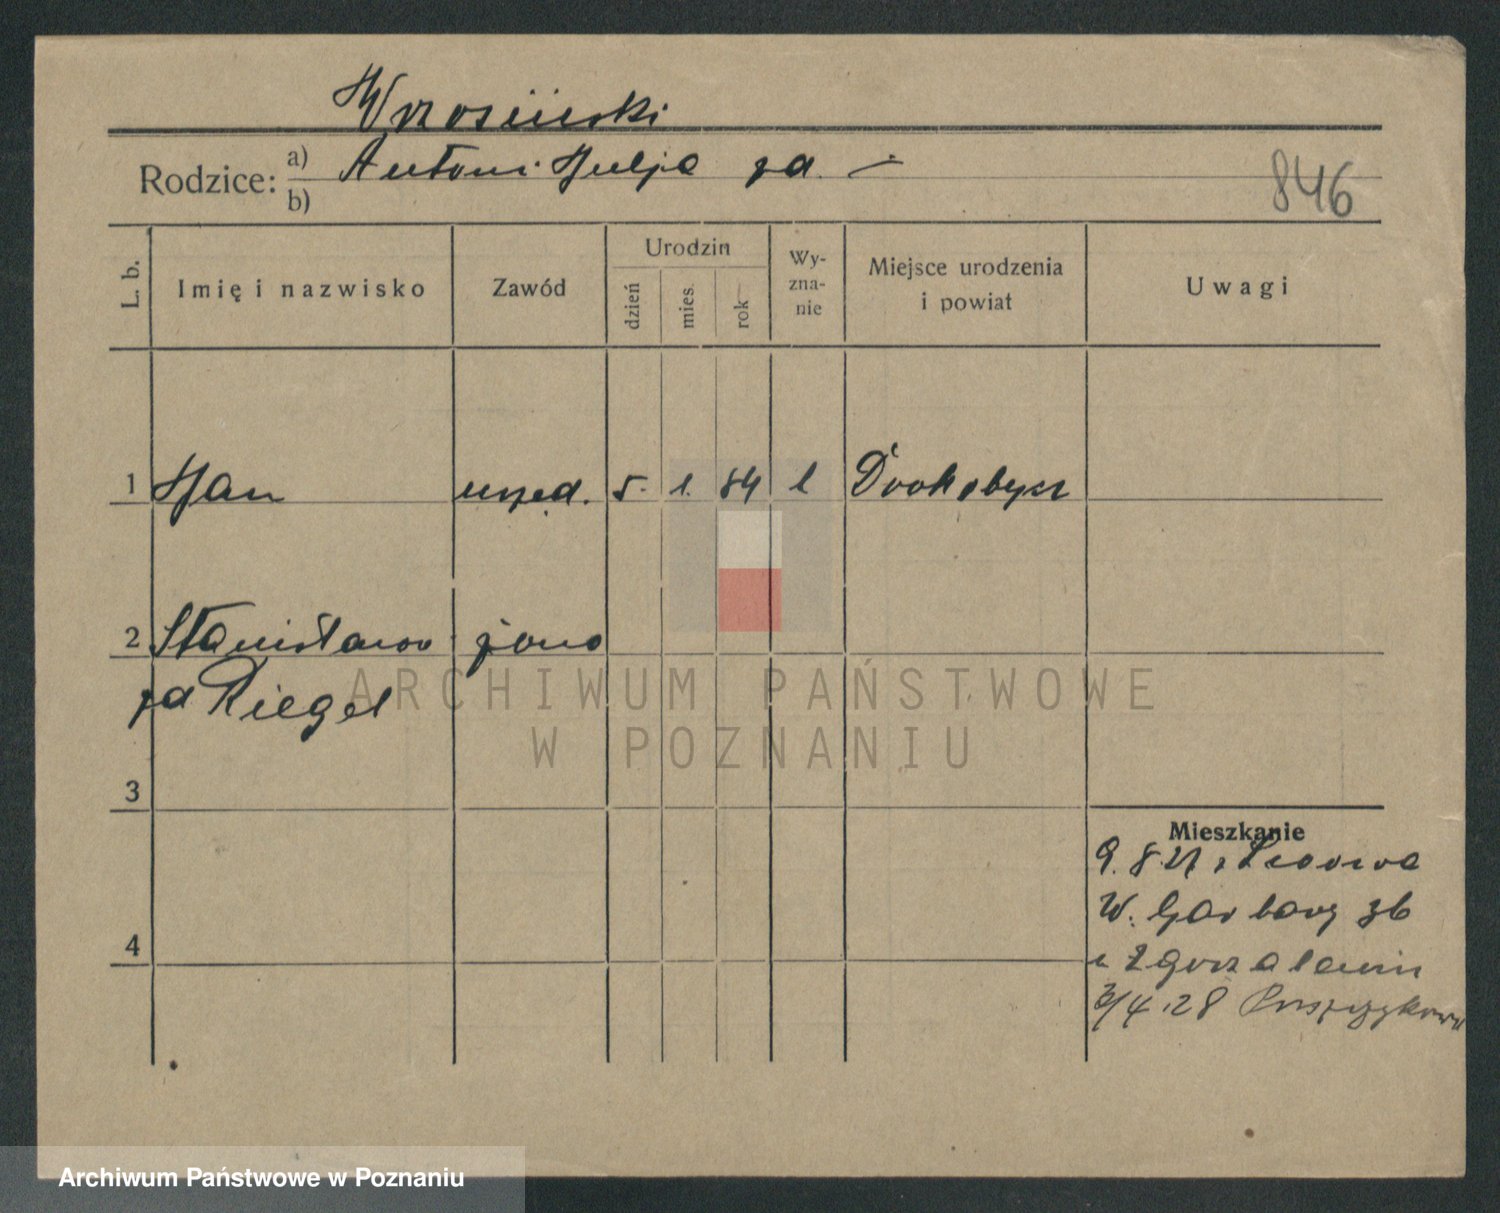 Rodzice: a) Antoni Julja za. —
b)
846
L. b.
Imię i nazwisko
Zawód
Urodzin
dzień
mies.
rok
Wy-
zna-
nie
Miejsce urodzenia
i powiat
Uwagi
1 Jan urzęd. 5. 1. 84 Drohobycz
2 Stanisława żona
zd Riegel
3
4
Mieszkanie
9. 8. 27 z
W. Garbary 36
u
3/4.28
ARCHIWUM PAŃSTWOWE
W POZNANIU
Archiwum Państwowe w Poznaniu